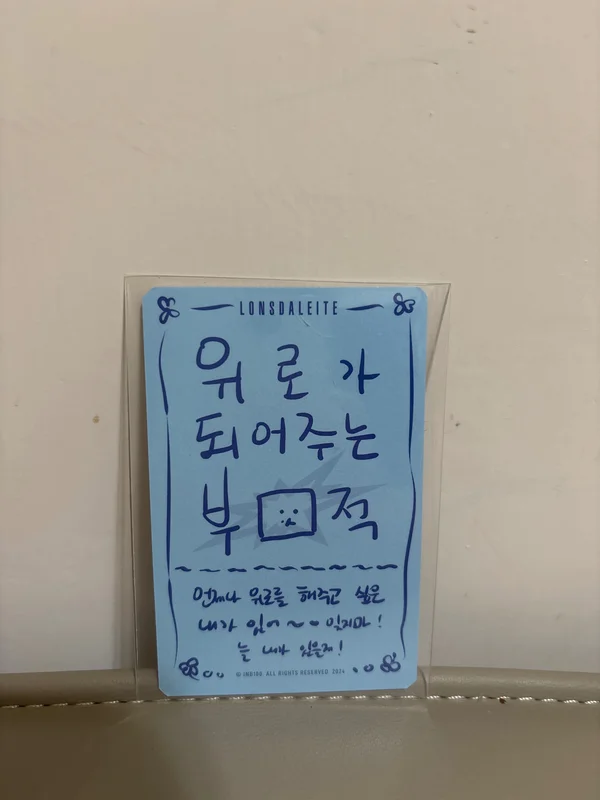 LONSDALEITE
위로가
되어주는
부적
언제나 위로를 해주고 싶은
내가 있어~ 잊지마!
늘 내가 있을게!
© INB100 ALL RIGHTS RESERVED. 2024